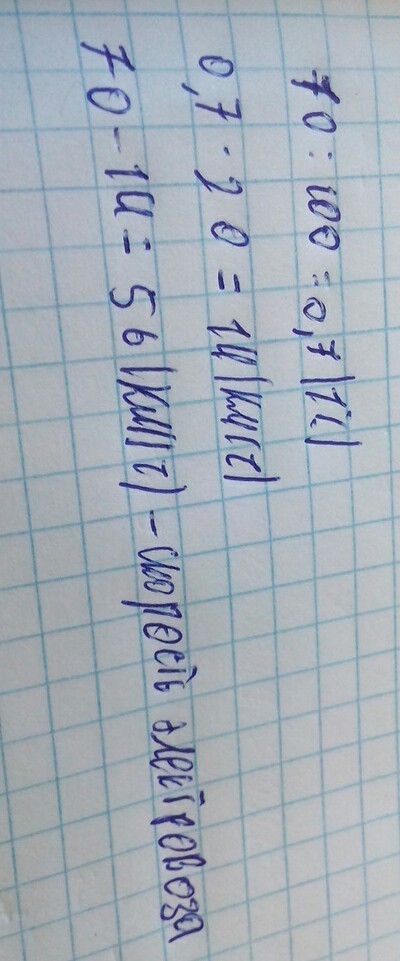 70 : 100 = 0,7 (1%)
0,7 · 20 = 14 (км/ч)
70 - 14 = 56 (км/ч) - скорость электровоза